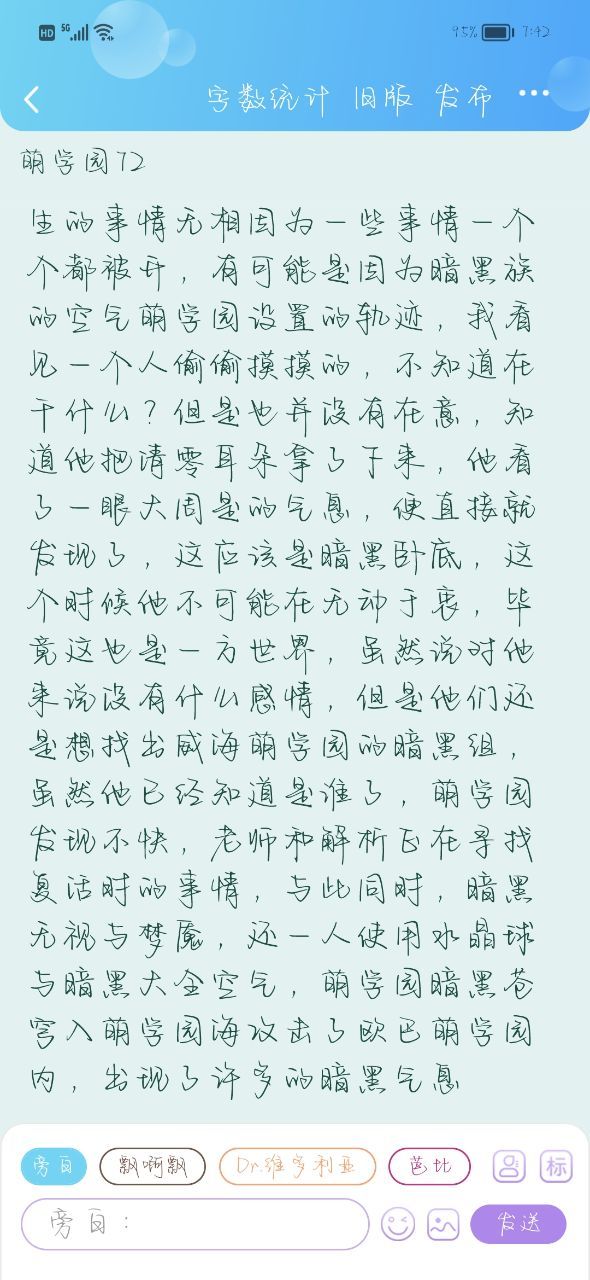 HD 5G 95% 7:42
字数统计 旧版 发布 •••
萌学园72
生的事情无相因为一些事情一个
个都被开，有可能是因为暗黑族
的空气萌学园设置的轨迹，我看
见一个人偷偷摸摸的，不知道在
干什么？但是也并没有在意，知
道他把清零耳朵拿了下来，他看
了一眼大周是的气息，便直接就
发现了，这应该是暗黑卧底，这
个时候他不可能在无动于衷，毕
竟这也是一方世界，虽然说对他
来说没有什么感情，但是他们还
是想找出威海萌学园的暗黑组，
虽然他已经知道是谁了，萌学园
发现不快，老师和解析正在寻找
复活时的事情，与此同时，暗黑
无视与梦魇，还一人使用水晶球
与暗黑大全空气，萌学园暗黑苍
穹入萌学园海攻击了欧巴萌学园
内，出现了许多的暗黑气息
旁白 飘啊飘 Dr.维多利亚 芭比 标
旁白： 发送